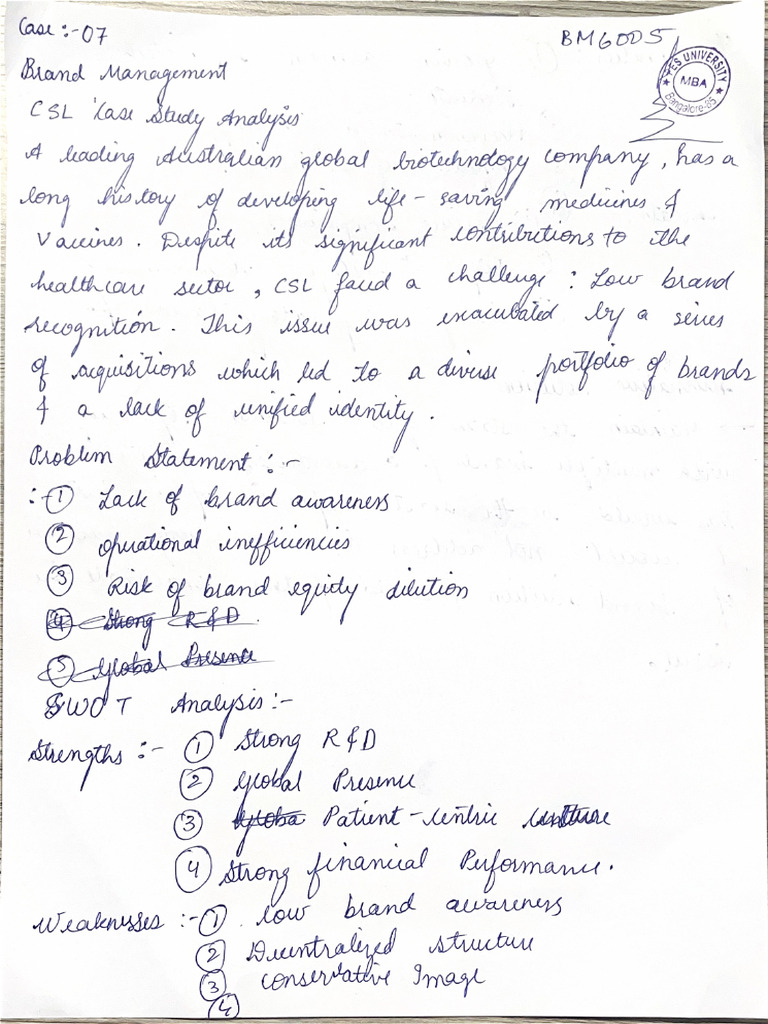 Case :- 07
BM60D5
PES UNIVERSITY
MBA
Bangalore-85
Brand Management
CSL Case Study Analysis
A leading Australian global biotechnology company, has a
long history of developing life-saving medicines &
Vaccines. Despite its significant contributions to the
healthcare sector, CSL faced a challenge : Low brand
recognition. This issue was exacubated by a series
of acquisitions which led to a diverse portfolio of brands
& a lack of unified identity.
Problem Statement :-
:- ① Lack of brand awareness
② Operational inefficiencies
③ Risk of brand equity dilution
④ Strong R&D
⑤ Global Presence
SWOT Analysis :-
Strengths :- ① Strong R&D
② Global Presence
③ Globa Patient-centric culture
④ Strong financial Performance.
Weaknesses :- ① Low brand awareness
② Decentralized structure
③ Conservative Image
④